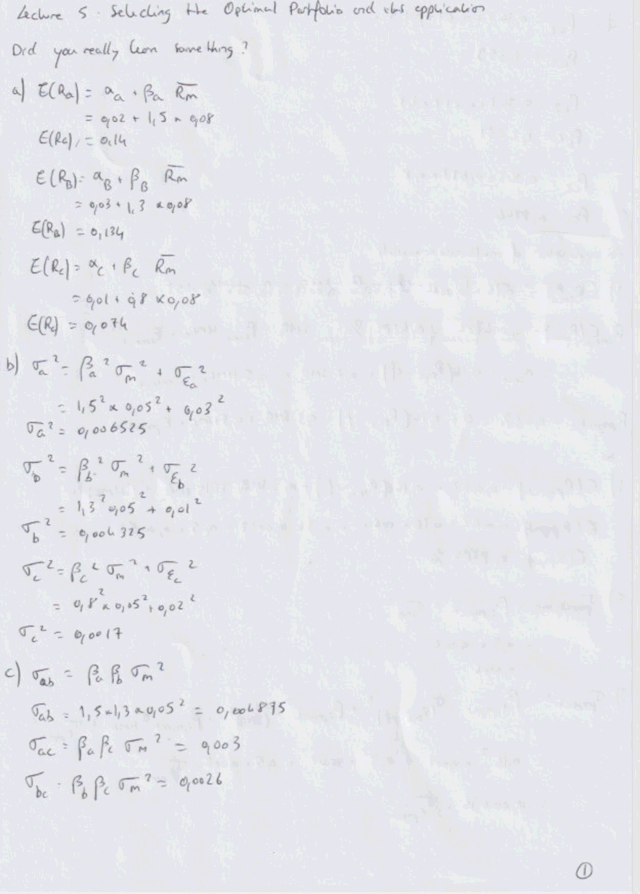 Lecture 5. Selecting the Optimal Portfolio and its application
Did you really learn something?
a) E(Ra) = αa + βa R̅m
= 0,02 + 1,5 × 0,08
E(Ra) = 0,14
E(RB) = αB + βB R̅m
= 0,03 + 1,3 × 0,08
E(RB) = 0,134
E(Rc) = αc + βc R̅m
= 0,01 + 0,8 × 0,08
E(Rc) = 0,074
b) σa² = βa² σm² + σεa²
= 1,5² × 0,05² + 0,03²
σa² = 0,006525
σb² = βb² σm² + σεb²
= 1,3² 0,05² + 0,01²
σb² = 0,004325
σc² = βc² σm² + σεc²
= 0,8² × 0,05² + 0,02²
σc² = 0,0017
c) σab = βa βb σm²
σab = 1,5 × 1,3 × 0,05² = 0,004875
σac = βa βc σm² = 0,003
σbc = βb βc σm² = 0,0026
1